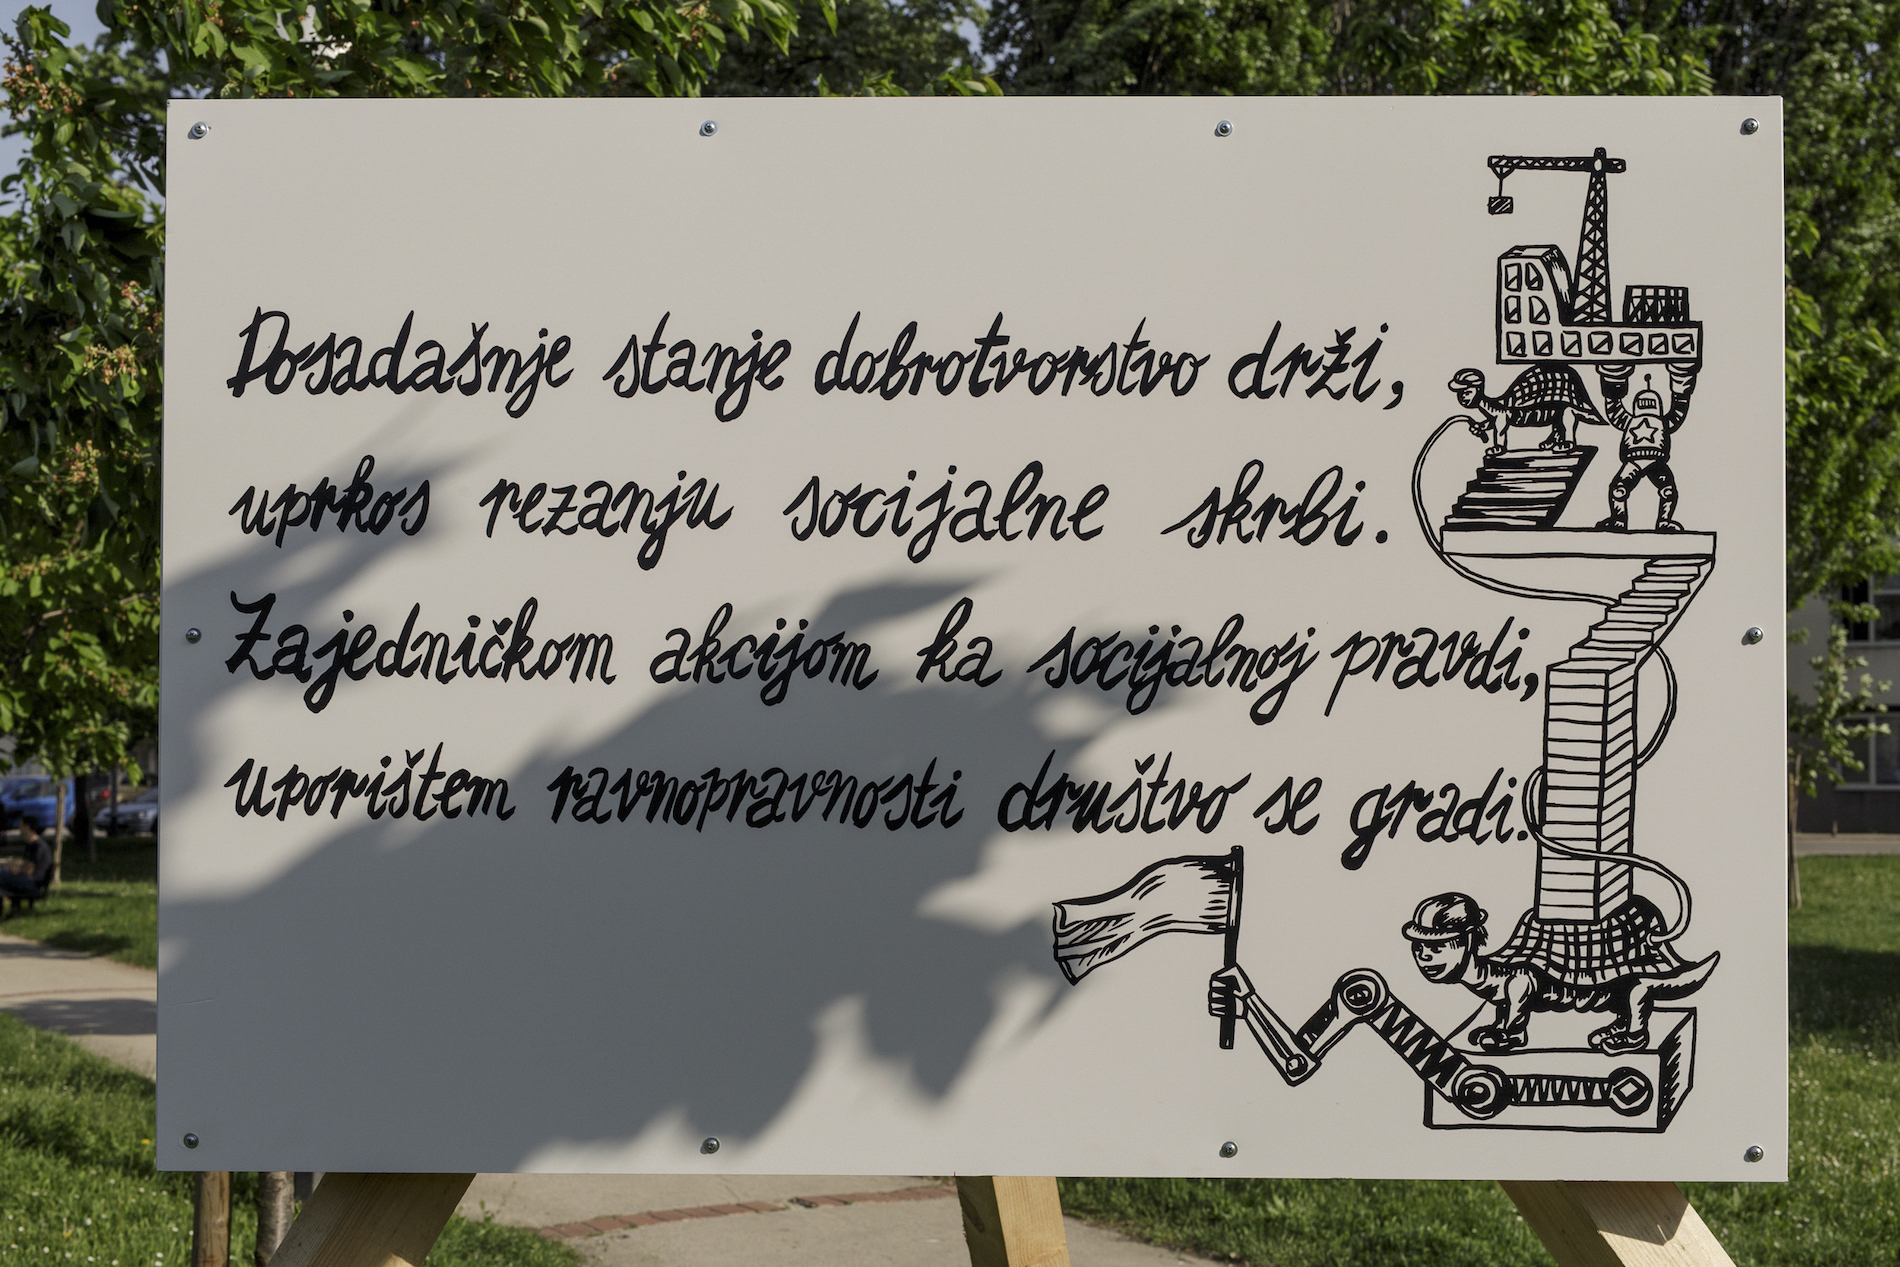 Dosadašnje stanje dobrotvorstvo drži,
uprkos rezanju socijalne skrbi.
Zajedničkom akcijom ka socijalnoj pravdi,
uporištem ravnopravnosti društvo se gradi.